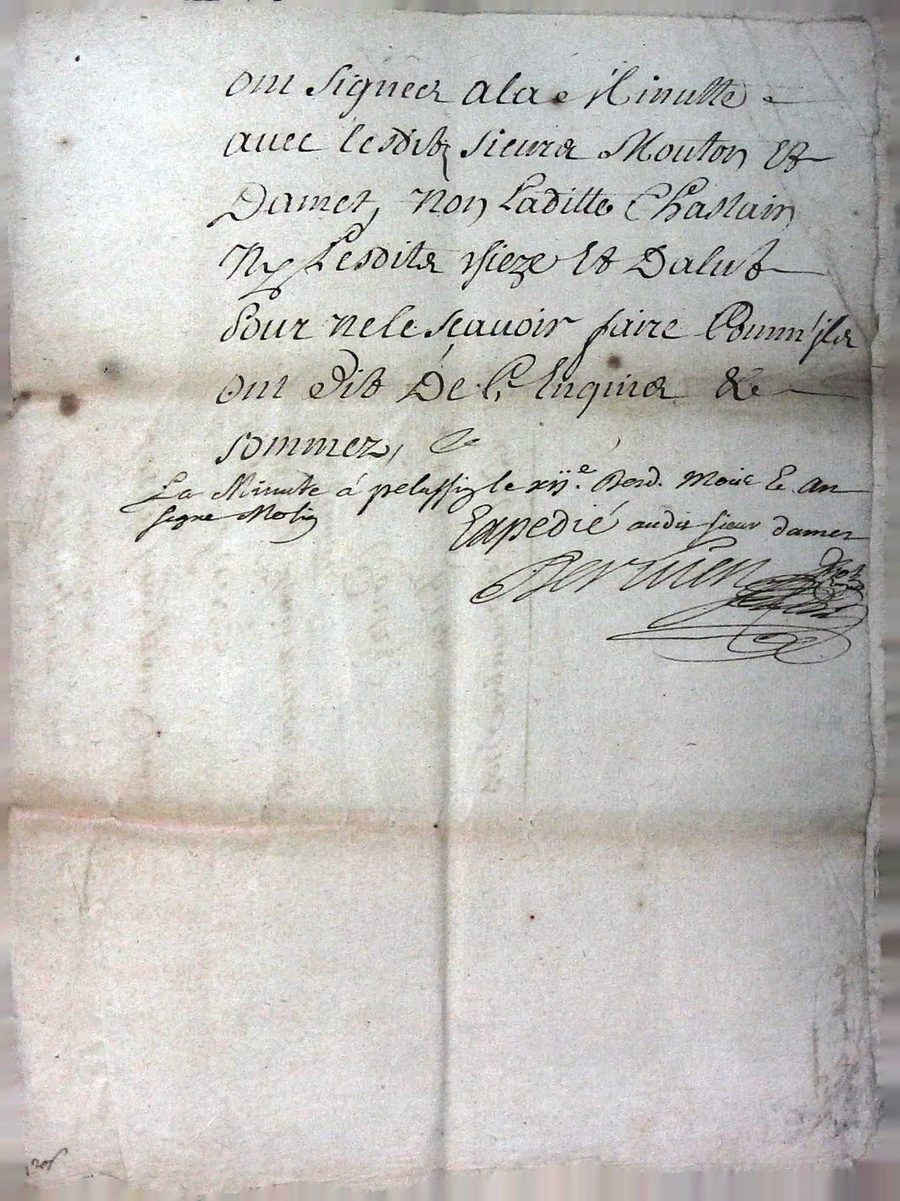 ont signéer a la Minutte
avec lesdits sieurs Mouton et
Damet, non Laditte Chastain
ny Lesdits sieze et Dalut
pour ne le sçavoir faire Comm'ils
ont dit de ce Enquis &
sommez,
La Minutte á pelussin le xije. Bord. Mois & an
segne
Expedié audit sieur damet